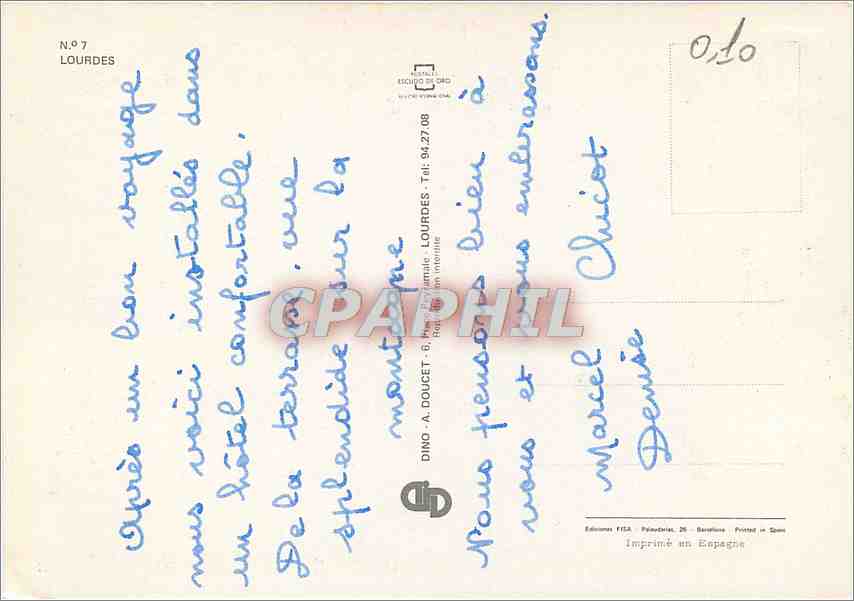 N.º 7
LOURDES
0,10
POSTALES
ESCUDO DE ORO
DINO - A. DOUCET - 6, Place Peyramale - LOURDES - Tel: 94.27.08
Reproduction interdite
Après un bon voyage
nous voici installés dans
un hôtel confortable.
De la terrasse, vue
splendide sur la
montagne
Nous pensons bien à
vous et vous embrassons.
Marcel Chicot
Denise
CPAPHIL
AD
Ediciones FISA - Palaudarias, 26 - Barcelona Printed in Spain
Imprimé en Espagne